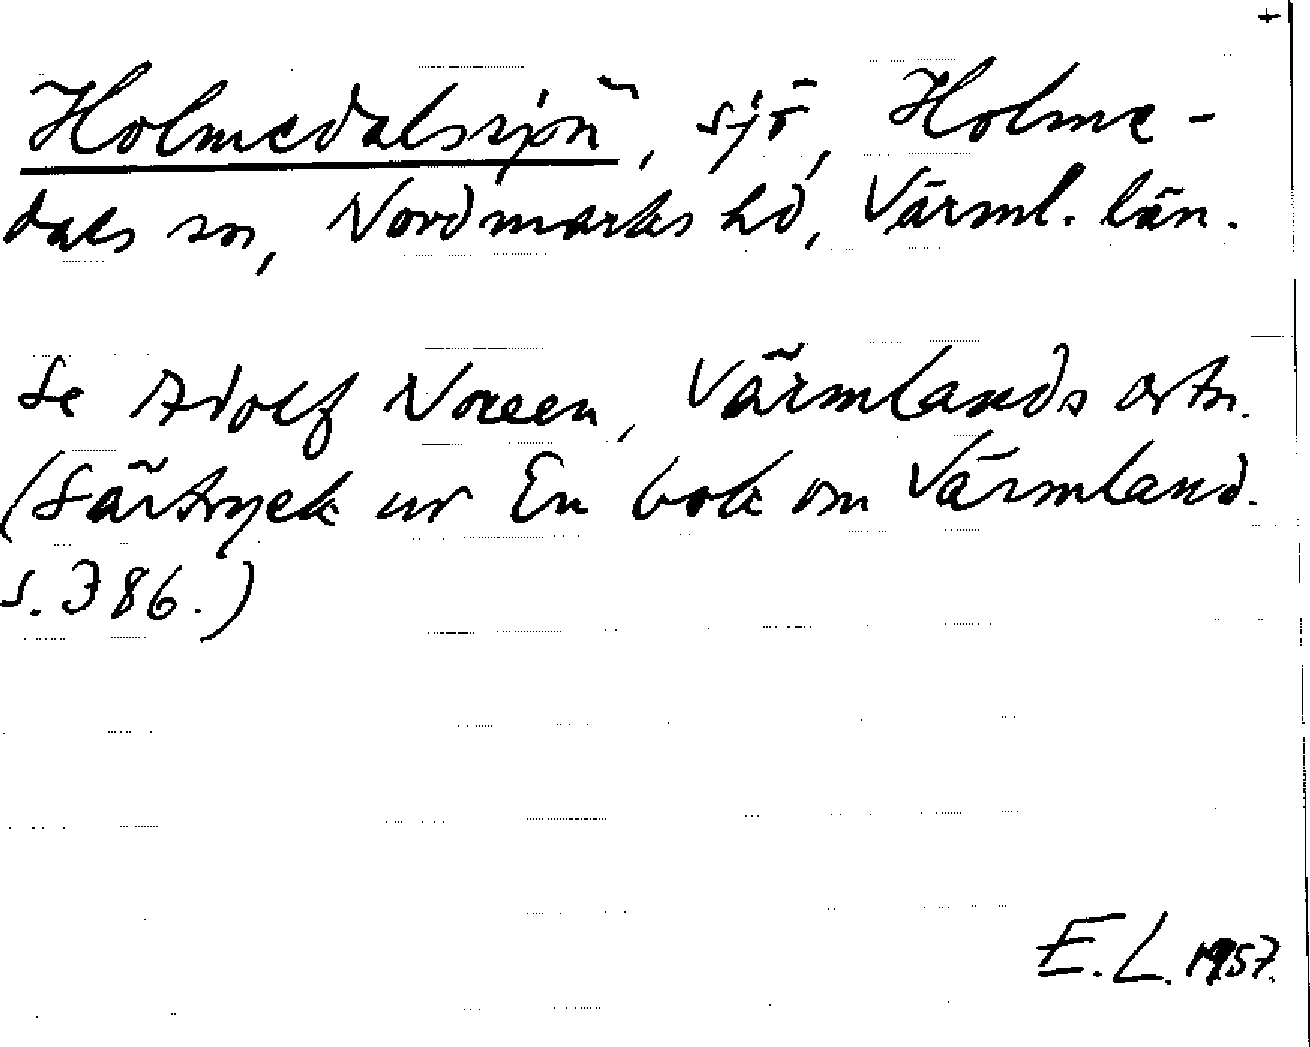 +
Holmedalssjön, sjö, Holme-
dals sn, Nordmarks hd, Värml. län.
Se Adolf Noreen, Värmlands ortn.
(Särtryck ur En bok om Värmland.
s. 386.)
E. L. 1957.